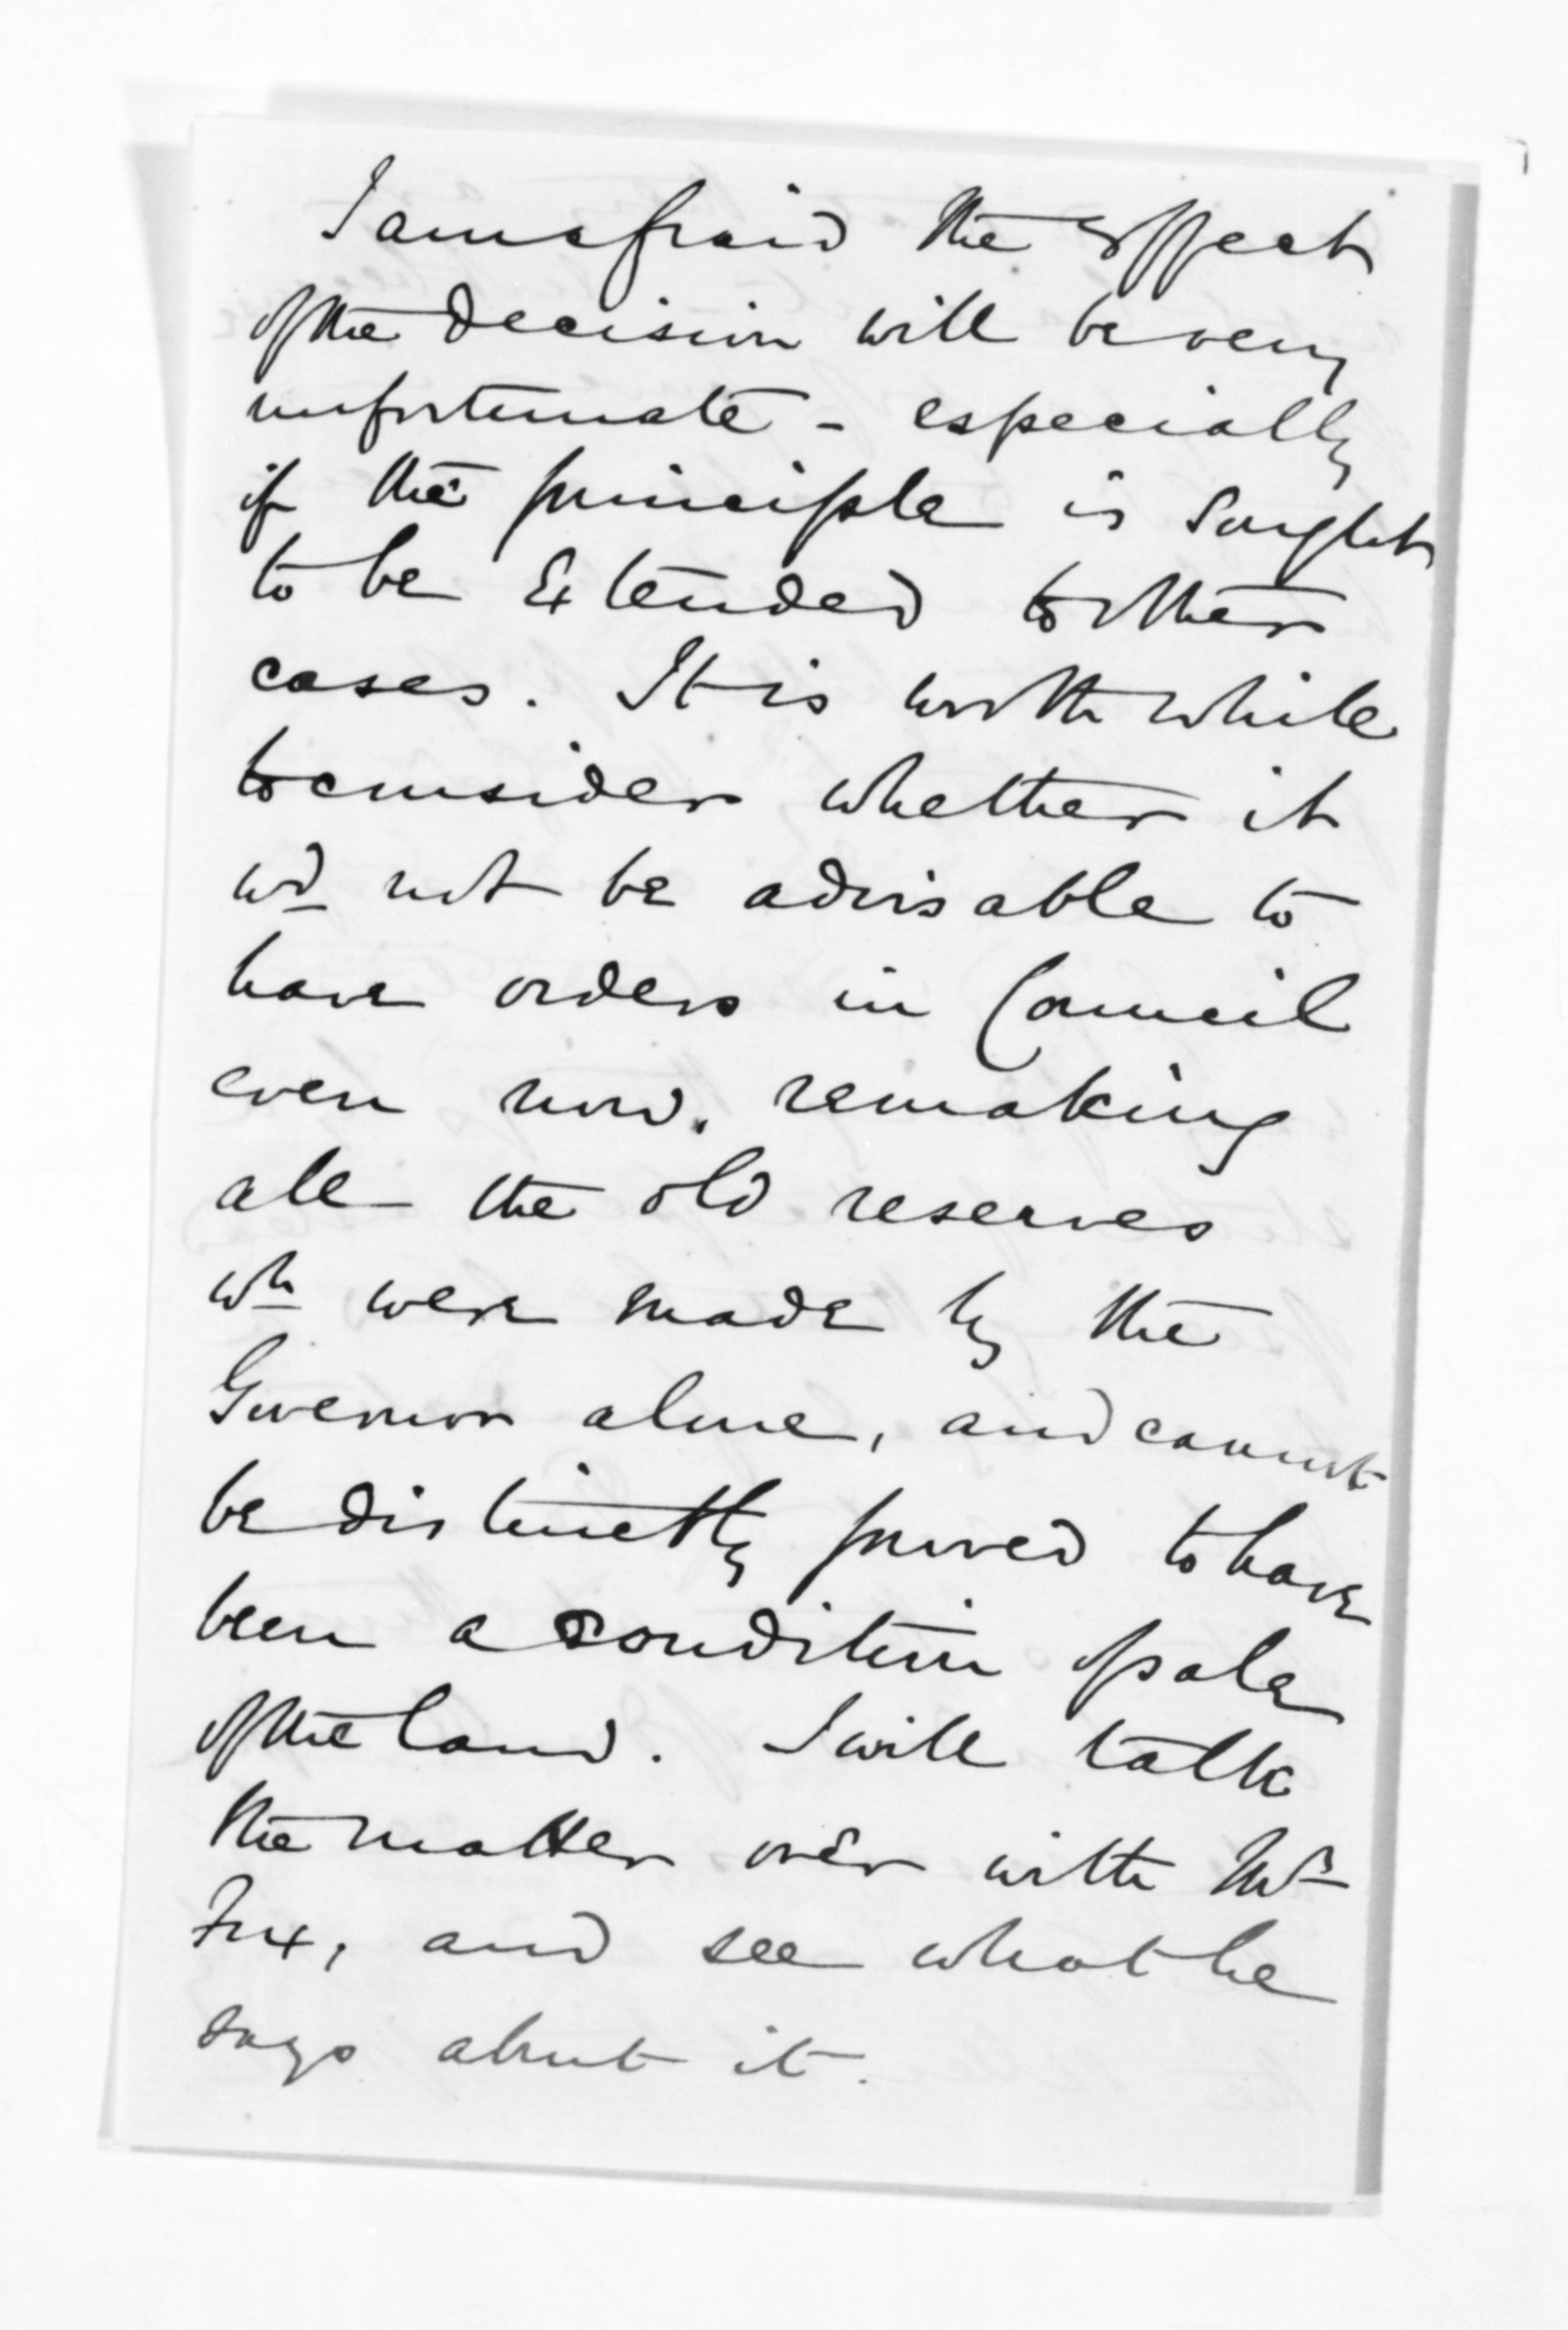 I am afraid the effect
of the decision will be very
unfortunate - especially
if the principle is sought
to be extended to other
cases. It is worth while
to consider whether it
wd not be advisable to
have orders in Council
even now, remaking
all the old reserves
wh were made by the
Governor alone, and cannot
be distinctly proved to have
been a condition of sale
of the land. I will talk
the matter over with Mr
Fox, and see what he
says about it.